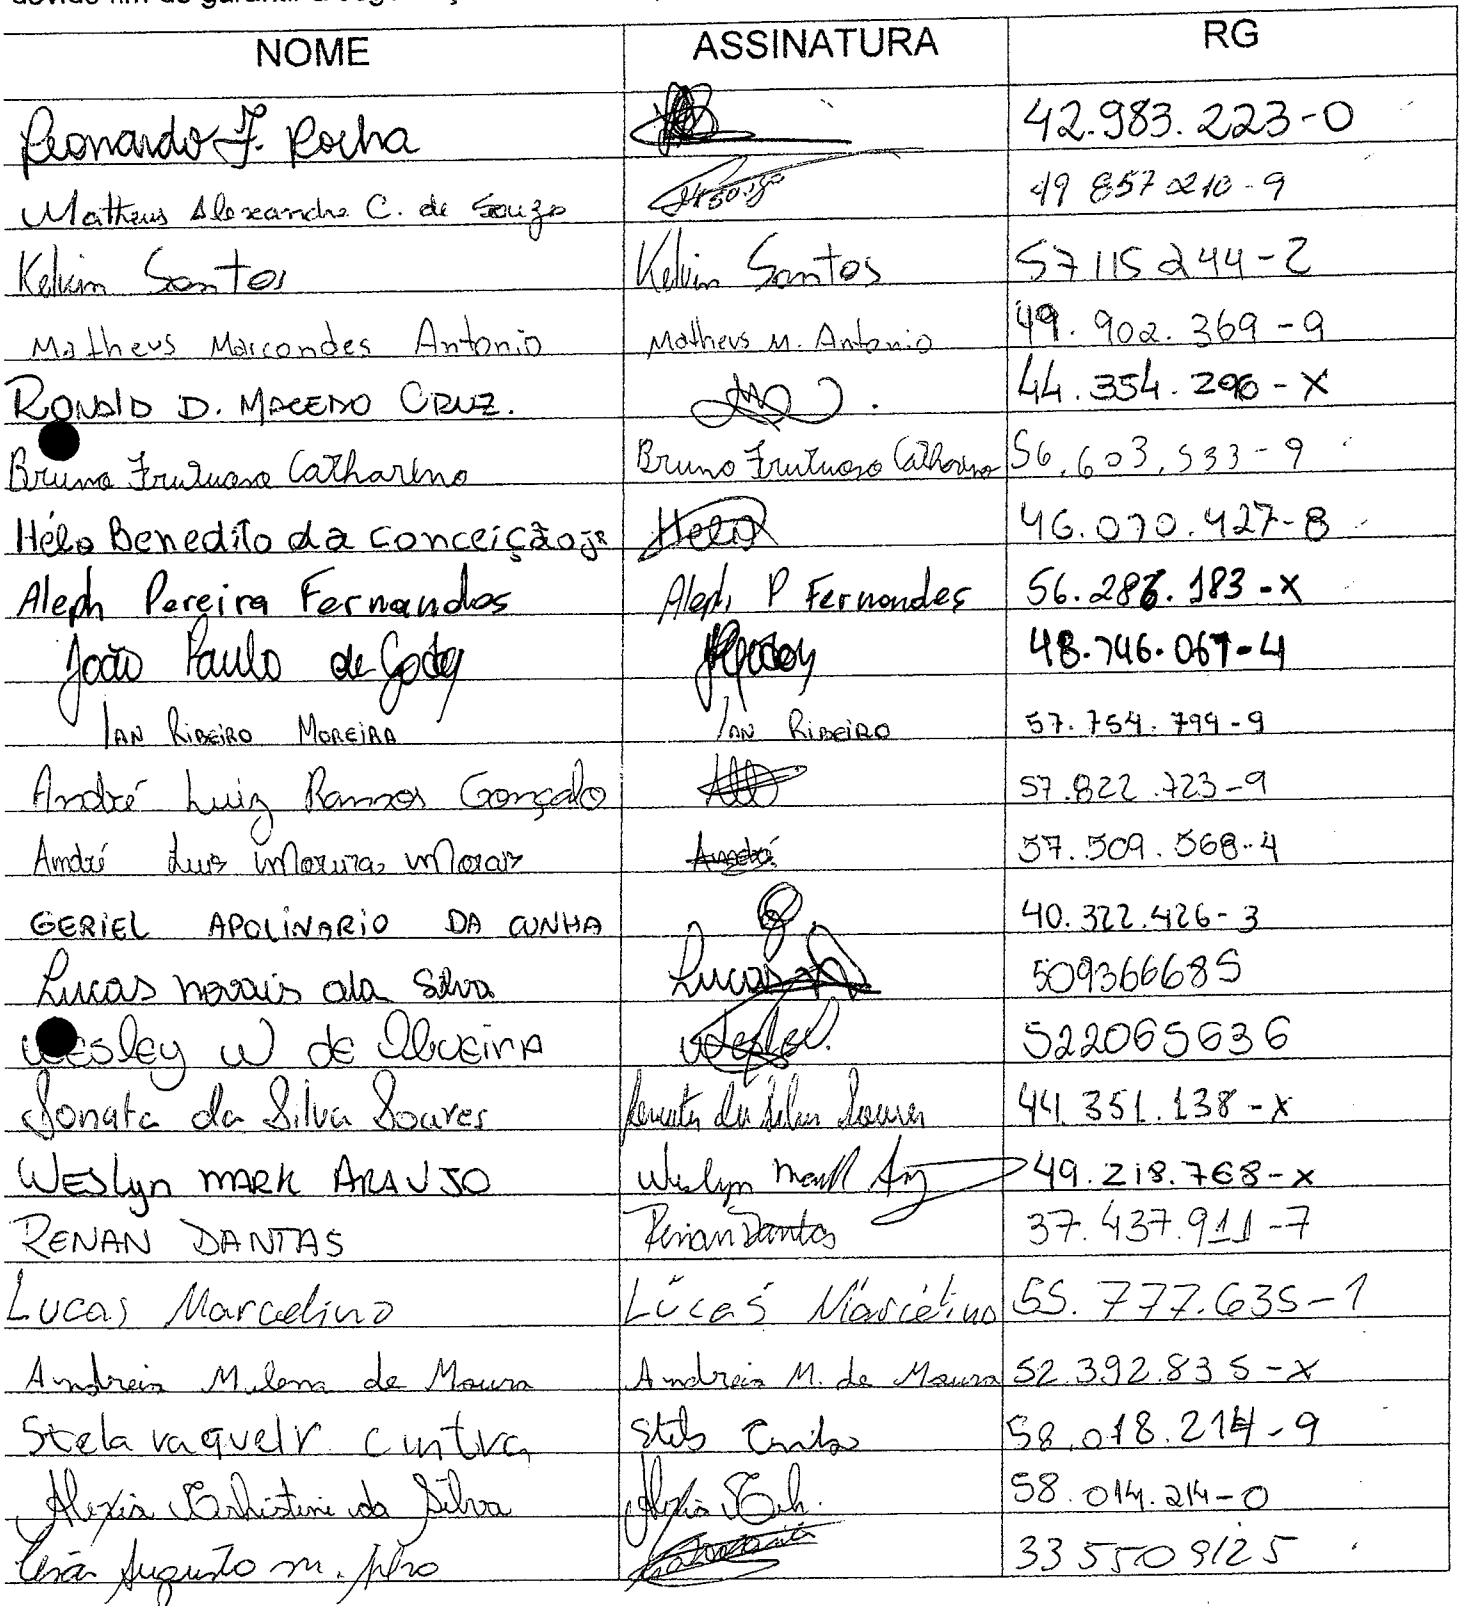 NOME ASSINATURA RG
Leonardo F. Rocha 42.983.223-0
Matheus Alexandre C. de Souza 49 857 210-9
Kelvin Santos Kelvin Santos 57 115 244-2
Matheus Marcondes Antonio Matheus M. Antonio 49.902.369-9
RONALD D. MACEDO CRUZ. 44.354.296-X
Bruno Frutuoso Catharino Bruno Frutuoso Catharino 56.603.533-9
Hélio Benedito da Conceição Jr Helio 46.070.427-8
Aleph Pereira Fernandes Aleph P Fernandes 56.286.183-X
João Paulo de Godoy JPGodoy 48.746.067-4
IAN RIBEIRO MOREIRA IAN RIBEIRO 57.754.799-9
André Luiz Ramos Gonçalo 57.822.723-9
André Luis Moreira Morais André 57.509.568-4
GERIEL APOLINARIO DA CUNHA 40.322.426-3
Lucas novais da Silva Lucas 509366685
Wesley W de Oliveira Wesley 522065636
Jonata da Silva Soares Jonata da Silva Soares 44.351.138-X
WESLyn MARK ARAUJO Weslyn Mark 49.218.768-X
RENAN DANTAS Renan Dantas 37.437.911-7
Lucas Marcelino Lucas Marcelino 55.777.635-1
Andreia Milena de Moura Andreia M. de Moura 52.392.835-X
Stela 58.018.214-9
Alexia da Silva Alexia 58.014.214-0
Augusto m. 335509125